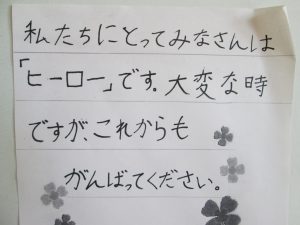 私たちにとってみなさんは
「ヒーロー」です。大変な時
ですが、これからも
がんばってください。